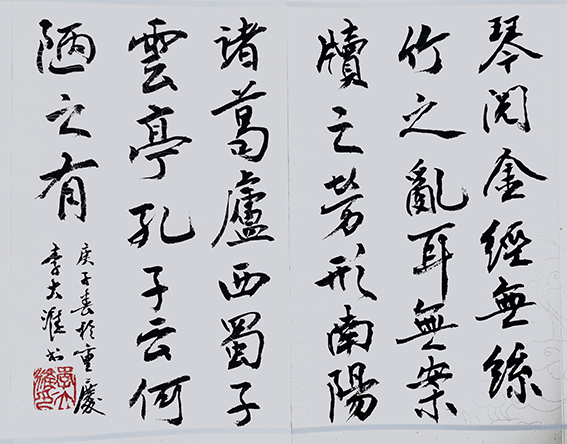 琴閱金經無絲
竹之亂耳無案
牘之勞形南陽
諸葛廬西蜀子
雲亭孔子云何
陋之有
庚子春於重慶
李大